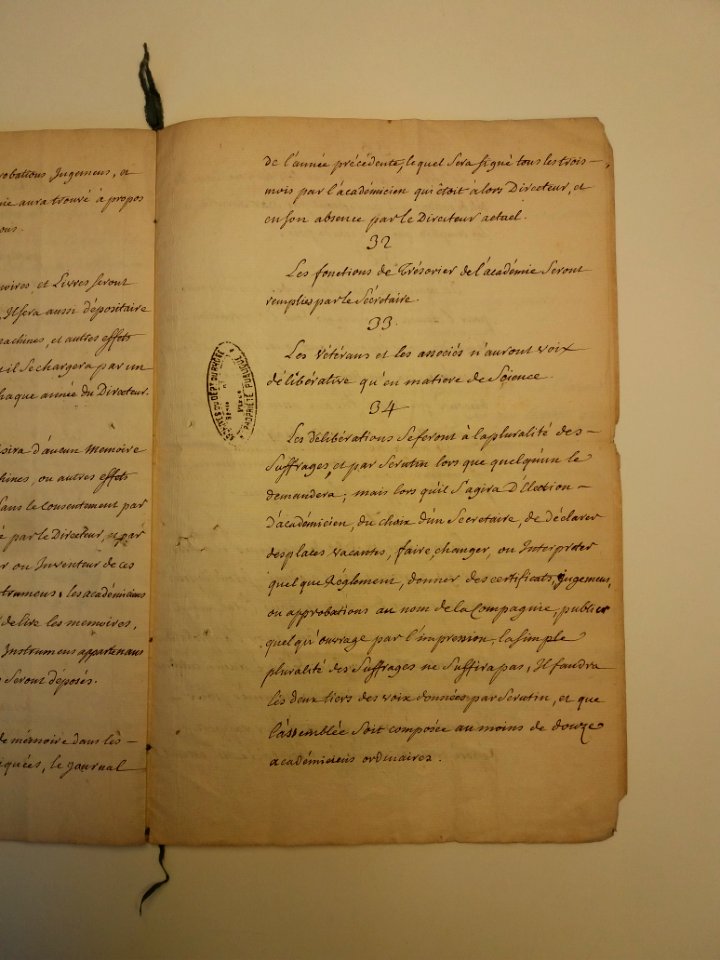 robations Jugemens, et
nie aura trouvé à propos
ous.
oires et Livres seront
Il sera aussi dépositaire
machines, et autres effets
u'il se chargera par un
chaque année du Directeur.
isira d'aucun Memoire
hines, ou autres effets
Sans le Consentement par
é par le Directeur, et par
r ou Inventeur de ces
struments: les académiciens
de lire les memoires,
Instrumens appartenans
Seront déposés.
de mémoire dans lès
quées, le journal
de l'année précédente, lequel Sera signé tous les trois
mois par l'académicien qui êtoit alors Directeur, et
en son absence par le Directeur actuel.
32
Les fonctions de Trésorier de l'académie Seront
remplies par le Sécrétaire.
33.
Les Vétérans et les associés n'auront voix
délibérative qu'en matiere de Science.
34
Les délibérations se feront à la pluralité des
Suffrages, et par Scrutin lors que quelqu'un le
demandera; mais lors qu'il S'agira d'Election
d'académicien, du choix d'un Secretaire, de déclarer
des places vacantes, faire, changer, ou Interpreter
quelque Réglement, donner des certificats, jugemens,
ou approbations au nom de la Compagnie, publier
quelqu'ouvrage par l'impression, la simple
pluralité des Suffrages ne Suffira pas, Il faudra
lès deux tiers des voix données par Scrutin, et que
l'assemblée Soit composée au moins de douze
académiciens ordinaires.
ARCHIVES DU DÉPT DU RHÔNE
PROPRIÉTÉ PUBLIQUE